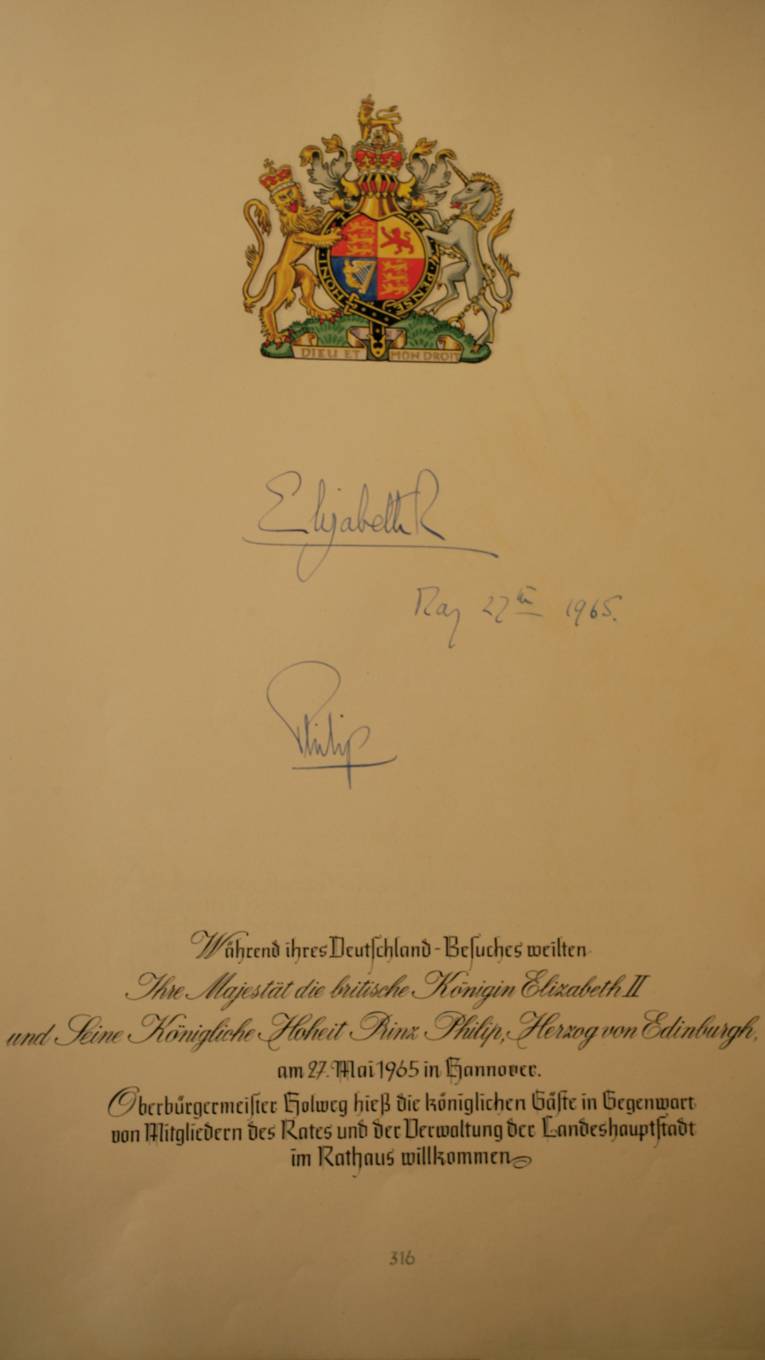 HONI PENSE
DIEU ET MON DROIT
Elizabeth R
May 27th 1965.
Philip
Während ihres Deutschland-Besuches weilten
Ihre Majestät die britische Königin Elizabeth II
und Seine Königliche Hoheit Prinz Philip, Herzog von Edinburgh,
am 27. Mai 1965 in Hannover.
Oberbürgermeister Holweg hieß die königlichen Gäste in Gegenwart
von Mitgliedern des Rates und der Verwaltung der Landeshauptstadt
im Rathaus willkommen
316